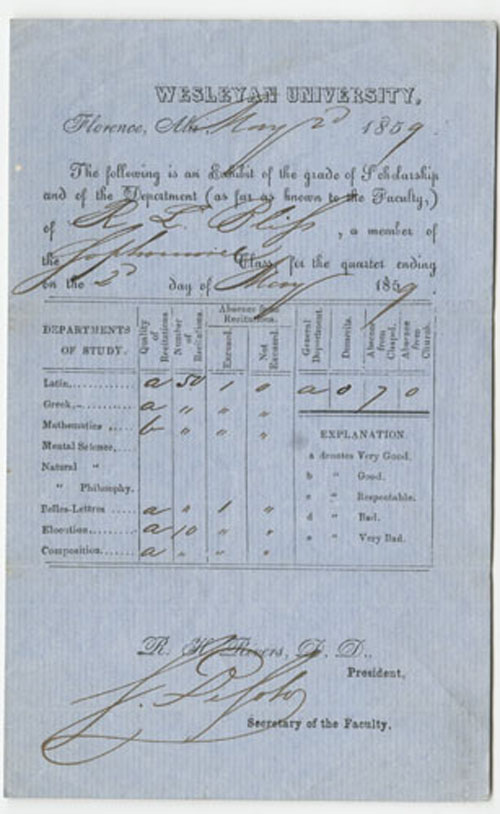 WESLEYAN UNIVERSITY,
Florence, Ala. May 2d 1859.
The following is an Exhibit of the grade of Scholarship
and of the Department (as far as known to the Faculty,)
of R L Bliss, a member of
the Sophomore Class, for the quarter ending
on the 2 day of May 1859.
DEPARTMENTS OF STUDY. Quality of Recitations. Number of Recitations. Absence from Recitations. Excused. Not Excused. General Department. Demerits. Absence from Chapel. Absence from Church.
Latin............ a 50 1 0 a 0 7 0
Greek,.......... a " " "
Mathematics ..... b " " "
EXPLANATION.
Mental Science,....
a denotes Very Good.
Natural "
b " Good.
" Philosophy.
c " Respectable.
d " Bad.
Belles-Lettres ..... a " 1 "
e " Very Bad.
Elocution........ a 10 " "
Composition...... a " " "
R. H. Rivers, D. D.,
President.
Secretary of the Faculty.